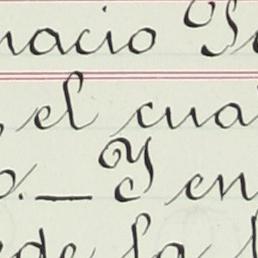 nacio
, el cua
o.—Y en
ede la